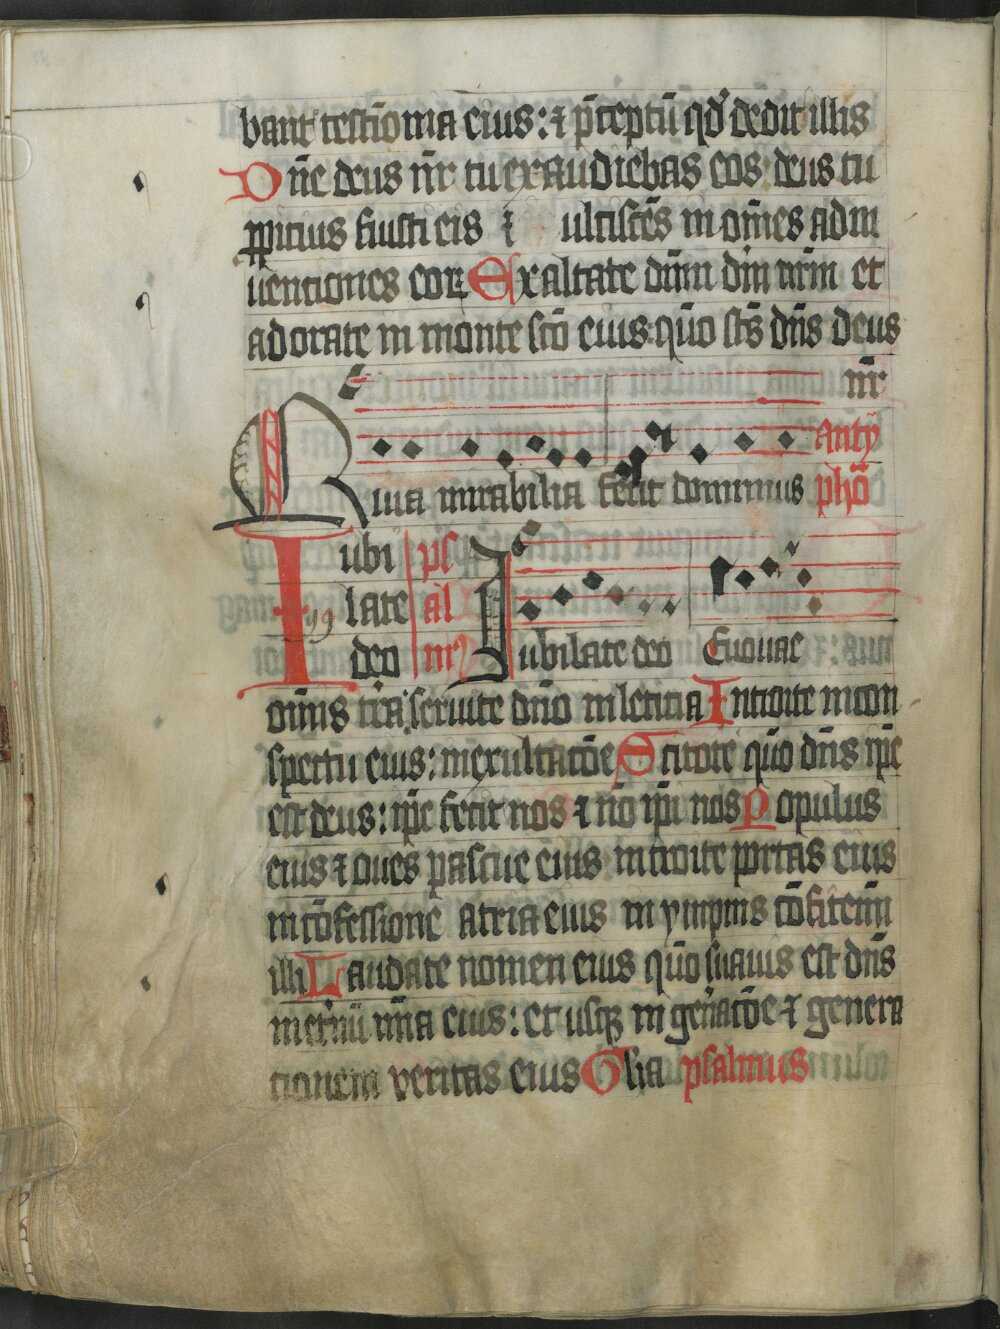 bant testiōnia eius: ⁊ p̄ceptū qd̓ dedit illis
Dn̄e deus nr̄ tu exaudiebas eos: deus tu
ꝓpicius fuisti eis ⁊ ulciscēs in om̄es adin
uentiones eoꝝ Exaltate dūm dm̄ nrm̄ et
adorate in monte scō eius: quō scs̄ dn̄s deus
nr̄
Quia mirabilia fecit dominus antyphō
Iubilate deo 99 psalm9 Iubilate deo Euouae
om̄is tr̄a: seruite dn̄o in leticia Introite in con
spectu eius: in exultacōe Scitote quō dn̄s ip̄e
est deus: ip̄e fecit nos ⁊ nō ip̄i nos Populus
eius ⁊ oues pascue eius introite portas eius
in cōfessione atria eius in ympnis cōfitemī
illi Laudate nomen eius quō suauis est dn̄s
in et̓nū mīa eius: et usqꝫ in gen̓acōe ⁊ genera
tionem veritas eius Glīa psalmus